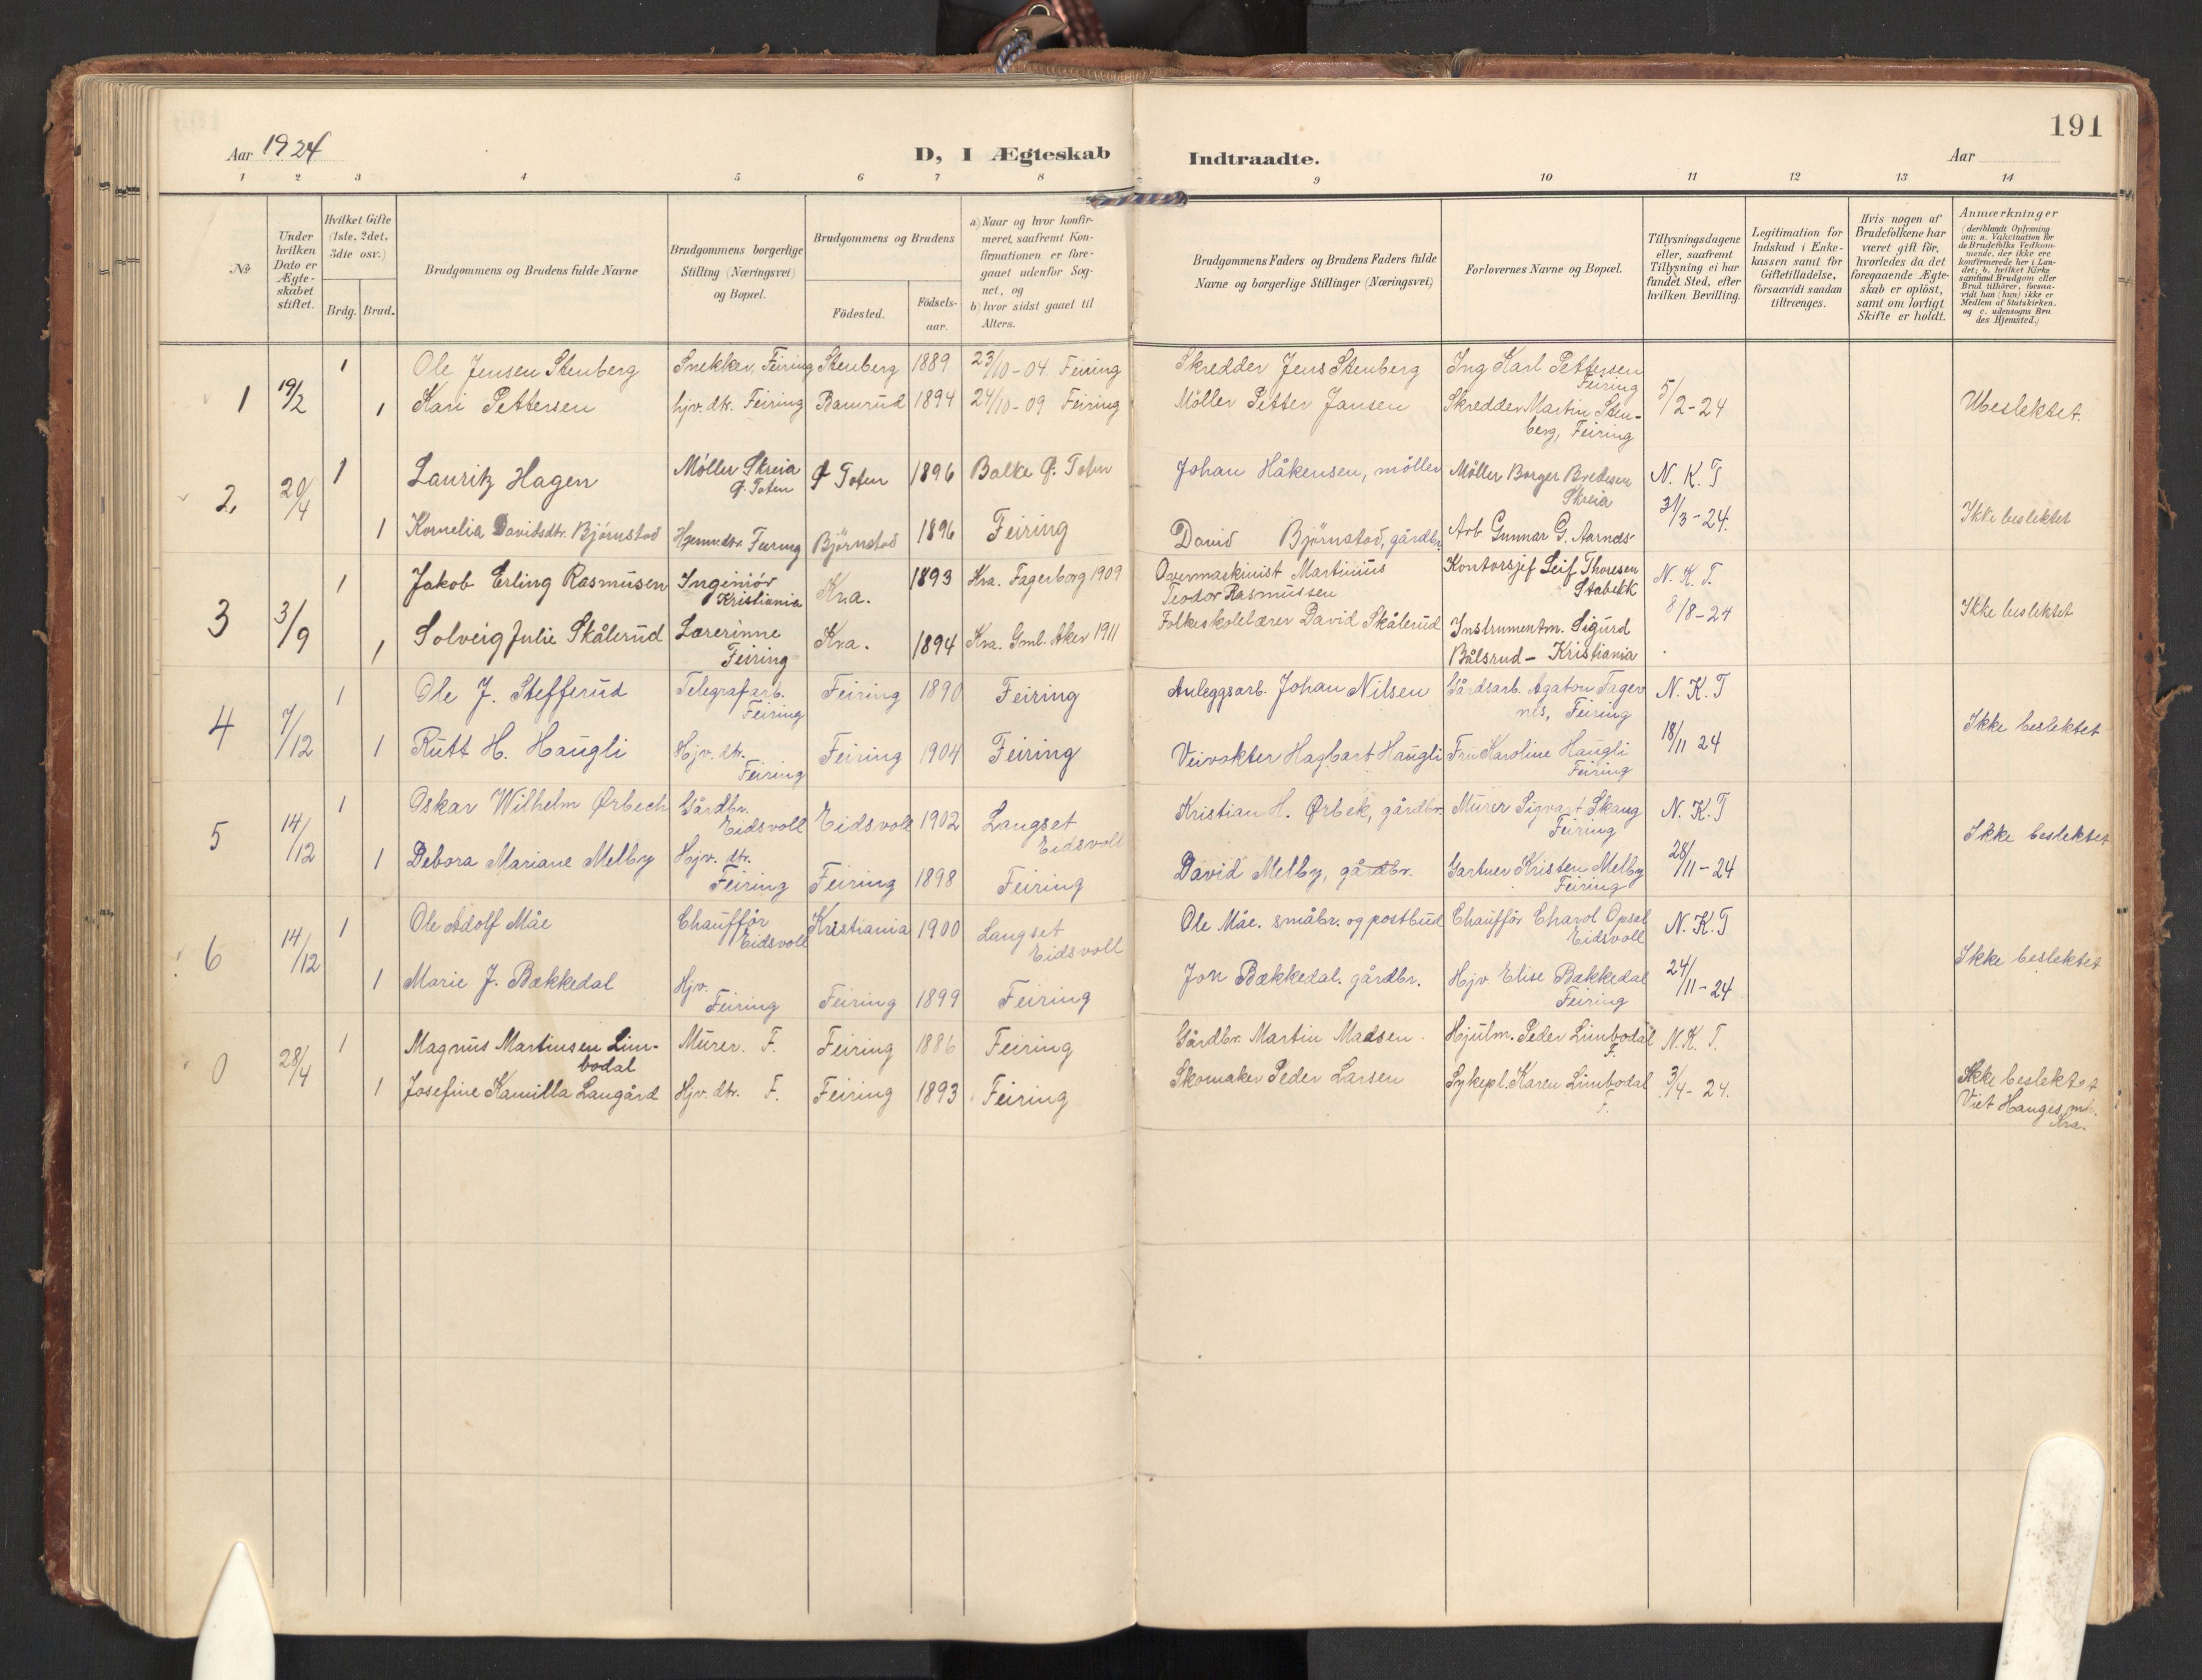 191
Aar 1924
D, I Ægteskab
Indtraadte.
Aar
1 2 3 4 5 6 7 8 9 10 11 12 13 14
№
Under
hvilken
Dato er
Ægte-
skabet
stiftet.
Hvilket Gifte
(1ste, 2det,
3die osv.)
Brdg. Brud.
Brudgommens og Brudens fulde Navne
Brudgommens borgerlige
Stilling (Næringsvei)
og Bopæl.
Brudgommens og Brudens
Fødested.
Fødsels-
aar.
a) Naar og hvor konfir-
meret, saafremt Kon-
firmationen er fore-
gaaet udenfor Sog-
net, og
b) hvor sidst gaaet til
Alters.
Brudgommens Faders og Brudens Faders fulde
Navne og borgerlige Stillinger (Næringsvei)
Forlovernes Navne og Bopæl.
Tillysningsdagene
eller, saafremt
Tillysning ei har
fundet Sted, efter
hvilken Bevilling.
Legitimation for
Indskud i Enke-
kassen samt for
Giftetilladelse,
forsaavidt saadan
tiltrænges.
Hvis nogen af
Brudefolkene har
været gift før,
hvorledes da det
foregaaende Ægte-
skab er opløst,
samt om lovligt
Skifte er holdt.
Anmærkninger
(deriblandt Oplysning
om: a. Vakcination for
de Brudefolks Vedkom-
mende, der ikke ere
konfirmerede her i Lan-
det; b. hvilket Kirke
samfund Brudgom eller
Brud tilhører, forsaa-
vidt han (hun) ikke er
Medlem af Statskirken,
og c. udensogns Bru
des Hjemsted.)
1 19/2 1 Ole Jensen Stenberg Snekker, Feiring Stenberg 1889 23/10-04 Feiring Skredder Jens Stenberg Ing Karl Pettersen
Feiring
1 Kari Pettersen hjv. dtr. Feiring Bamrud 1894 24/10-09 Feiring Möller Petter Jansen Skredder Martin Sten-
berg, Feiring 5/2-24 Ubeslektet.
2, 20/4 1 Lauritz Hagen Møller Skreia
Ø. Toten Ø Toten 1896 Balke Ø. Toten Johan Håkensen, möller Möller Borger Bredesen
Skreia N. K. T
1 Kornelia Davidsdtr. Bjørnstad Hjemv.dtr. Feiring Bjørnstad 1896 Feiring David Bjørnstad, gårdbr. Arb Gunnar G. Aarnes- 31/3-24. Ikke beslektet
3 3/9 1 Jakob Erling Rasmusen Ingeniör
Kristiania Kra. 1893 Kra. Fagerborg 1909 Overmaskinist Martinius
Teodor Rasmussen Kontorsjef Leif Thoresen
Stabekk N. K. T.
1 Solveig Julie Skålerud Lærerinne
Feiring Kra. 1894 Kra. Gml. Aker 1911 Folkeskolelærer David Skålerud Instrumentm. Sigurd
Bålsrud - Kristiania 8/8-24 Ikke beslektet
4 7/12 1 Ole J. Stefferud Telegrafarb.
Feiring Feiring 1890 Feiring Anleggsarb. Johan Nilsen Gårdsarb. Agaton Tager
nes, Feiring N. K. T
1 Rutt H. Haugli Hjv. dtr.
Feiring Feiring 1904 Feiring Veivokter Hagbart Haugli Fru Karoline Haugli
Feiring 18/11 24 Ikke beslektet
5 14/12 1 Oskar Wilhelm Ørbech Gårdbr.
Eidsvoll Eidsvoll 1902 Langset
Eidsvoll Kristian H. Ørbek, gårdbr. Murer Sigvart Skaug
Feiring N. K. T
1 Debora Mariane Melby Hjv. dtr.
Feiring Feiring 1898 Feiring David Melby, gårdbr. Gartner Kristen Melby
Feiring 28/11-24 Ikke beslektet
6 14/12 1 Ole Adolf Måe Chaufför
Eidsvoll Kristiania 1900 Langset
Eidsvoll Ole Måe. småbr. og postbud Chaufför Charol Opsal
Eidsvoll N. K. T
1 Marie J. Bækkedal Hjv.
Feiring Feiring 1899 Feiring Jon Bækkedal. gårdbr. Hjv. Elise Bækkedal
Feiring 24/11-24 Ikke beslektet
0 28/4 1 Magnus Martinsen Lim-
bodal Murer. F. Feiring 1886 Feiring Gårdbr. Martin Madsen. Hjulm. Peder Limbodal
F. N. K. T.
1 Josefine Kamilla Langård Hjv. dtr. F. Feiring 1893 Feiring Skomaker Peder Larsen Sykepl. Karen Limbodal
F. 3/4-24. Ikke beslektet
Viet Hauges mh.
Kra.